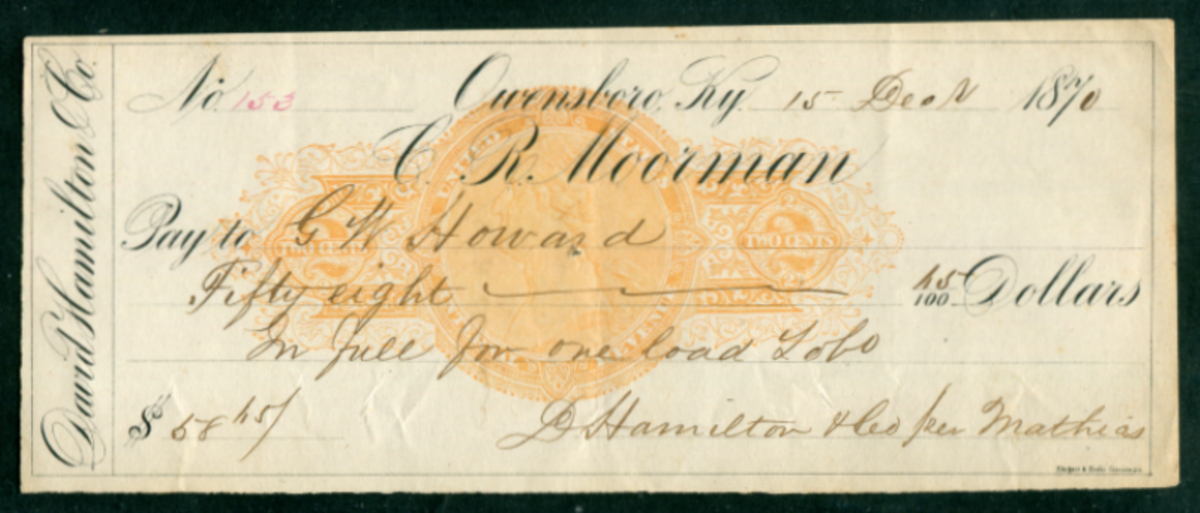 David Hamilton & Co.
No. 153 Owensboro, Ky. 15 Dec 1870
C. R. Moorman
Pay to G W Howard
Fifty eight 45/100 Dollars
In full for one load Tobo
$ 58 45/
D Hamilton & Co per Mathias
UNITED STATES
TWO CENTS 2 TWO CENTS 2